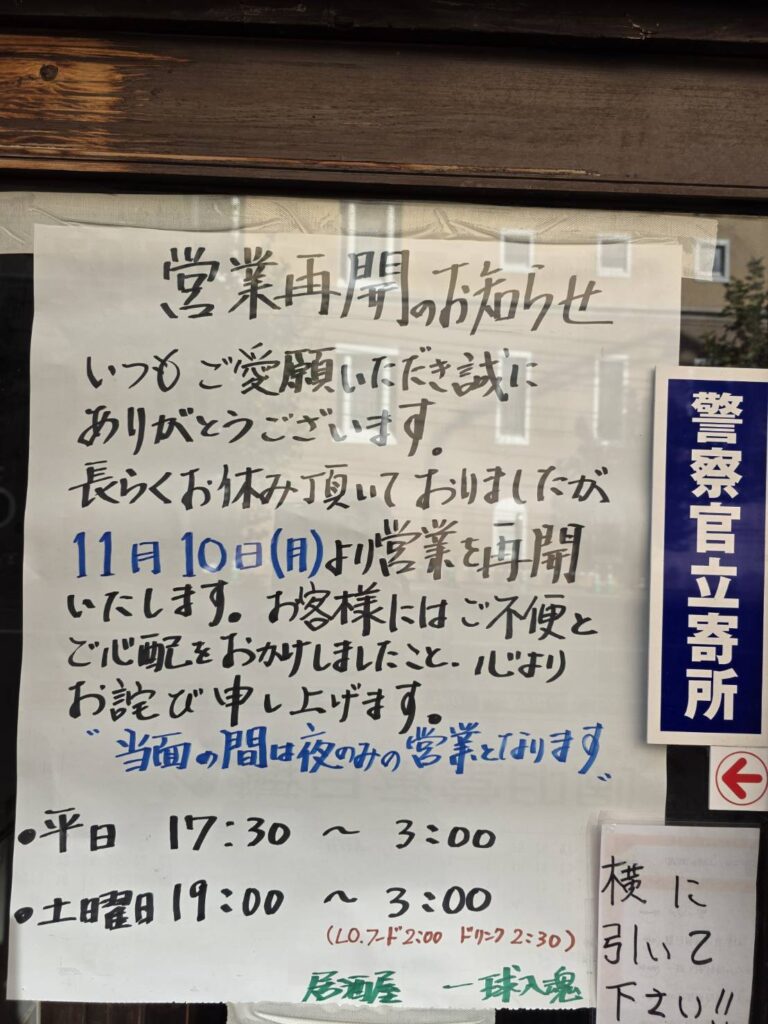 営業再開のお知らせ
いつもご愛願いただき誠に
ありがとうございます。
長らくお休み頂いておりましたが
11月10日(月)より営業を再開
いたします。お客様にはご不便と
ご心配をおかけしましたこと、心より
お詫び申し上げます。
〝当面の間は夜のみの営業となります〟
•平日 17:30 ～ 3:00
•土曜日 19:00 ～ 3:00
(L.O.フード2:00 ドリンク2:30)
居酒屋 一球入魂
警察官立寄所
横に
引いて
下さい!!